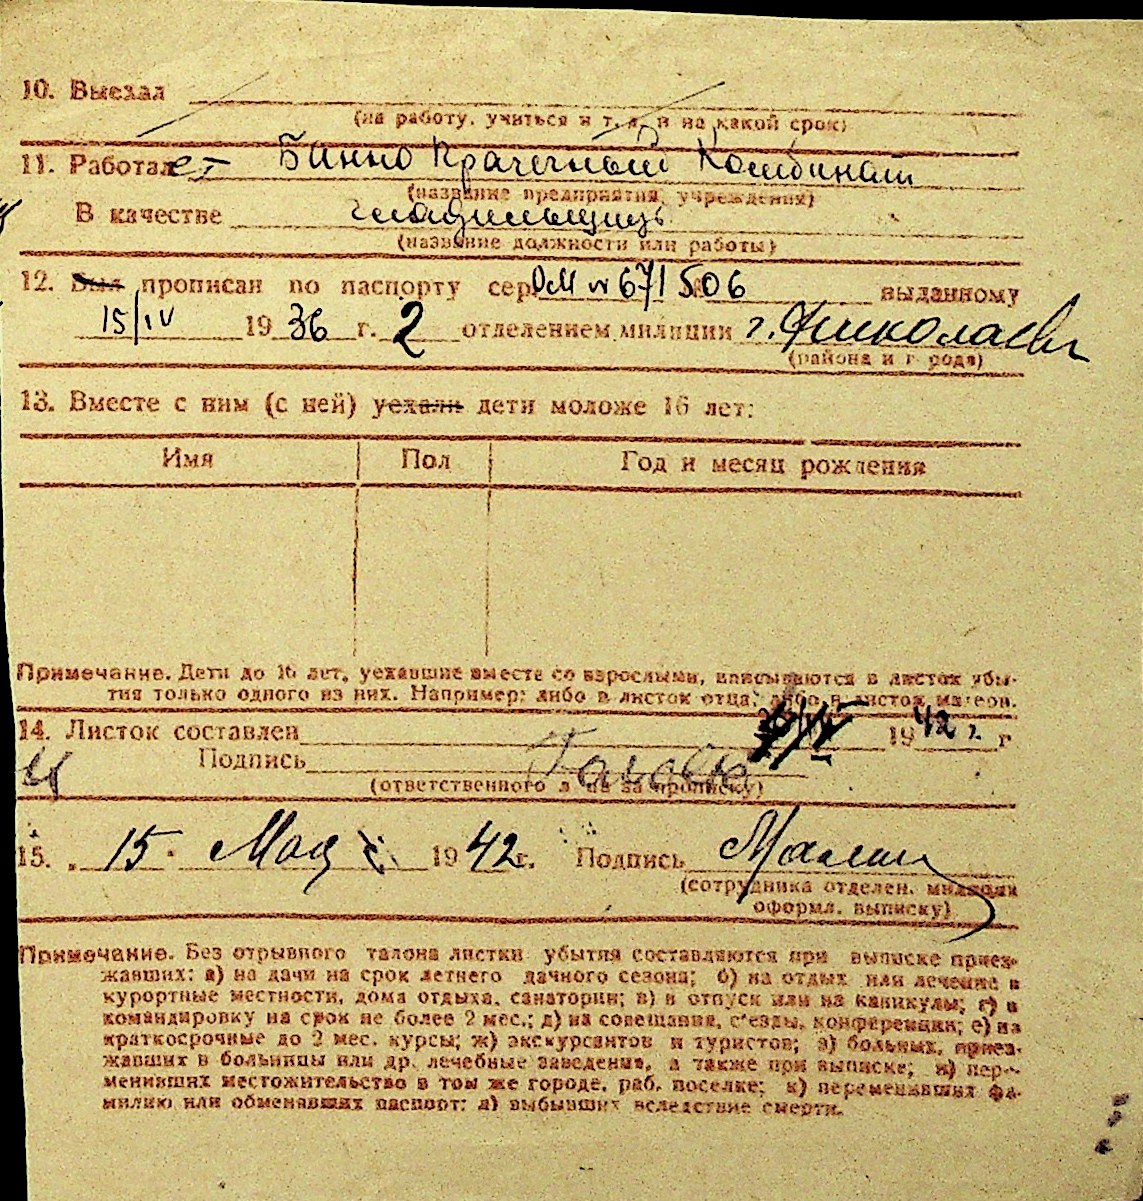 10. Выехал
(на работу, учиться и т. д. и на какой срок)
11. Работает Банно Прачечный Комбинат
(название предприятия, учреждения)
В качестве гладильщицы
(название должности или работы)
12. Был прописан по паспорту сер. ОМ № 671506 выданному
15/IV 1936 г. 2 отделением милиции г. Николаев
(района и города)
13. Вместе с ним (с ней) уехали дети моложе 16 лет:
Имя Пол Год и месяц рождения
Примечание. Дети до 16 лет, уехавшие вместе со взрослыми, вписываются в листок убы-
тия только одного из них. Например: либо в листок отца, либо в листок матери.
14. Листок составлен 1942 г. г
Подпись
(ответственного за прописку)
15. 15 Мая 1942 г. Подпись
(сотрудника отделен. милиции
оформл. выписку)
Примечание. Без отрывного талона листки убытия составляются при выписке приез-
жавших: а) на дачи на срок летнего дачного сезона; б) на отдых или лечение в
курортные местности, дома отдыха, санатории; в) в отпуск или на каникулы; г) в
командировку на срок не более 2 мес.; д) на совещания, с'езды, конференции; е) на
краткосрочные до 2 мес. курсы; ж) экскурсантов и туристов; з) больных, приез-
жавших в больницы или др. лечебные заведения, а также при выписке; и) пере-
менивших местожительство в том же городе, раб. поселке; к) переменивших фа-
милию или обменявших паспорт; л) выбывших вследствие смерти.